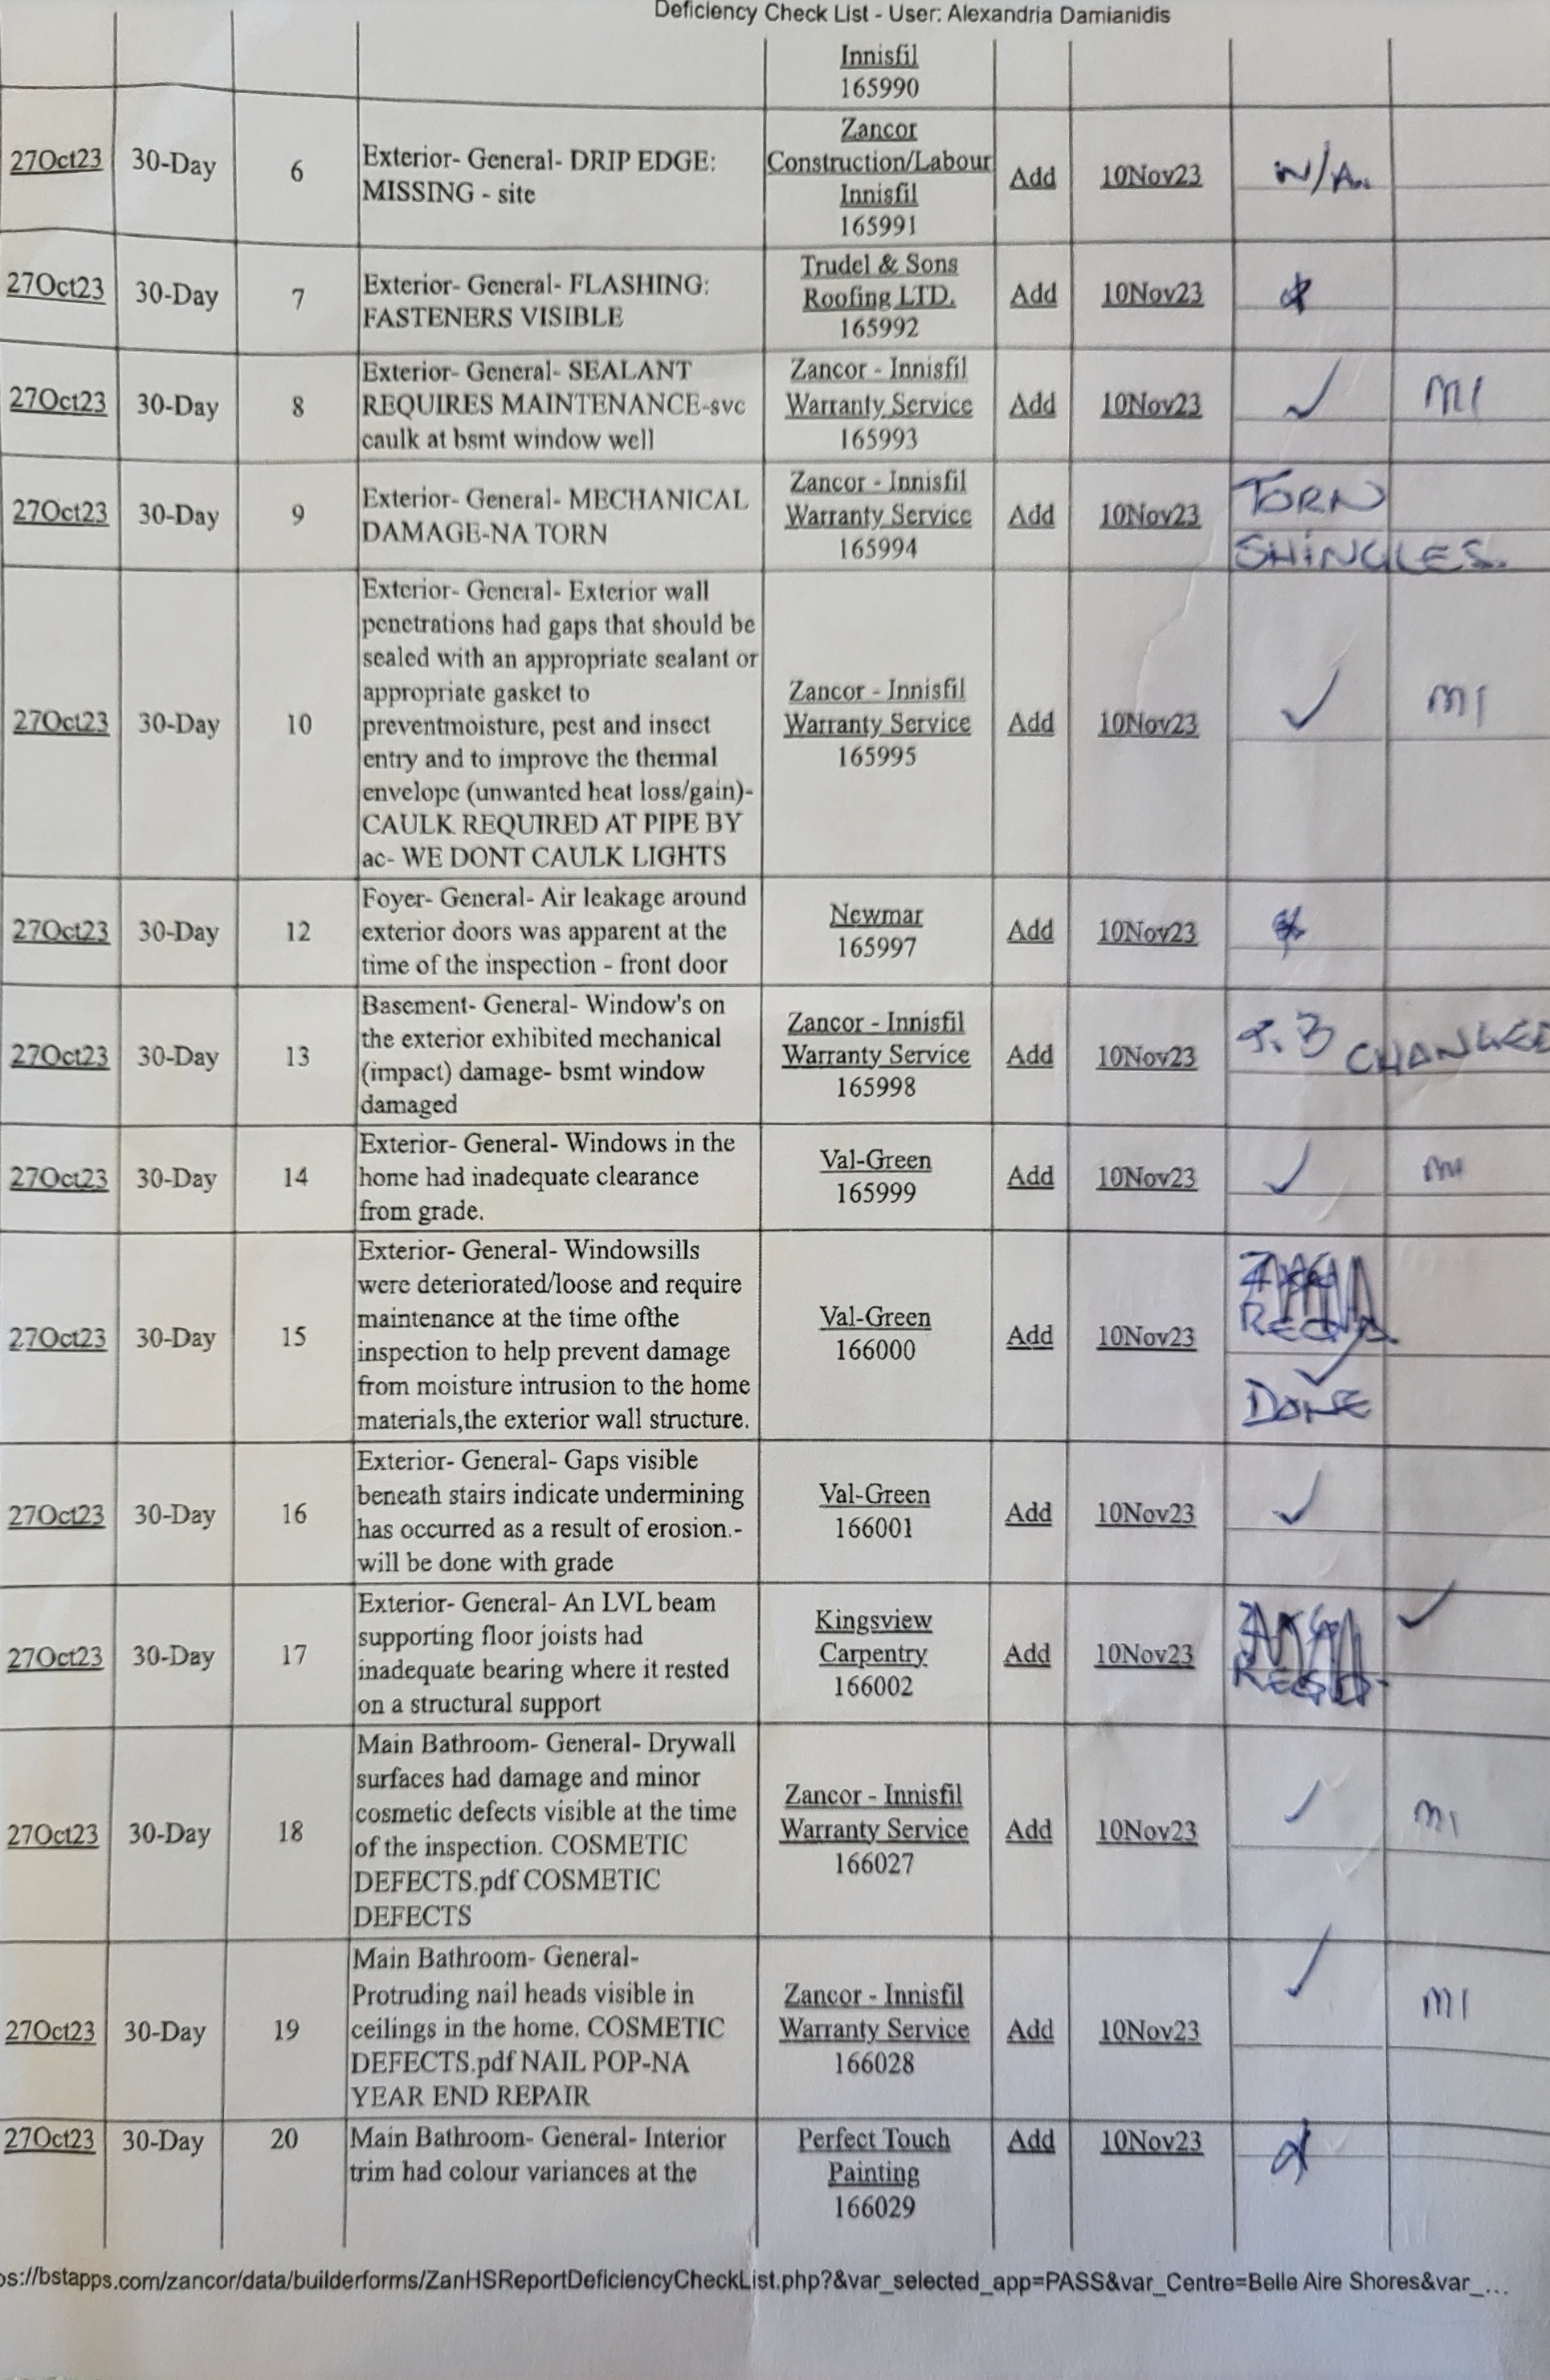 Deficiency Check List - User: Alexandria Damianidis
Innisfil
165990
27Oct23 30-Day 6 Exterior- General- DRIP EDGE:
MISSING - site
Zancor
Construction/Labour
Innisfil
165991
Add 10Nov23 N/A.
27Oct23 30-Day 7 Exterior- General- FLASHING:
FASTENERS VISIBLE
Trudel & Sons
Roofing LTD.
165992
Add 10Nov23
27Oct23 30-Day 8 Exterior- General- SEALANT
REQUIRES MAINTENANCE-svc
caulk at bsmt window well
Zancor - Innisfil
Warranty Service
165993
Add 10Nov23 ✓ M1
27Oct23 30-Day 9 Exterior- General- MECHANICAL
DAMAGE-NA TORN
Zancor - Innisfil
Warranty Service
165994
Add 10Nov23 TORN
SHINGLES.
27Oct23 30-Day 10 Exterior- General- Exterior wall
penetrations had gaps that should be
sealed with an appropriate sealant or
appropriate gasket to
preventmoisture, pest and insect
entry and to improve the thermal
envelope (unwanted heat loss/gain)-
CAULK REQUIRED AT PIPE BY
ac- WE DONT CAULK LIGHTS
Zancor - Innisfil
Warranty Service
165995
Add 10Nov23 ✓ M1
27Oct23 30-Day 12 Foyer- General- Air leakage around
exterior doors was apparent at the
time of the inspection - front door
Newmar
165997
Add 10Nov23
27Oct23 30-Day 13 Basement- General- Window's on
the exterior exhibited mechanical
(impact) damage- bsmt window
damaged
Zancor - Innisfil
Warranty Service
165998
Add 10Nov23 CHANGED
27Oct23 30-Day 14 Exterior- General- Windows in the
home had inadequate clearance
from grade.
Val-Green
165999
Add 10Nov23 ✓ M1
27Oct23 30-Day 15 Exterior- General- Windowsills
were deteriorated/loose and require
maintenance at the time ofthe
inspection to help prevent damage
from moisture intrusion to the home
materials,the exterior wall structure.
Val-Green
166000
Add 10Nov23 ✓
DONE
27Oct23 30-Day 16 Exterior- General- Gaps visible
beneath stairs indicate undermining
has occurred as a result of erosion.-
will be done with grade
Val-Green
166001
Add 10Nov23 ✓
27Oct23 30-Day 17 Exterior- General- An LVL beam
supporting floor joists had
inadequate bearing where it rested
on a structural support
Kingsview
Carpentry
166002
Add 10Nov23 ✓
27Oct23 30-Day 18 Main Bathroom- General- Drywall
surfaces had damage and minor
cosmetic defects visible at the time
of the inspection. COSMETIC
DEFECTS.pdf COSMETIC
DEFECTS
Zancor - Innisfil
Warranty Service
166027
Add 10Nov23 ✓ M1
27Oct23 30-Day 19 Main Bathroom- General-
Protruding nail heads visible in
ceilings in the home. COSMETIC
DEFECTS.pdf NAIL POP-NA
YEAR END REPAIR
Zancor - Innisfil
Warranty Service
166028
Add 10Nov23 ✓ M1
27Oct23 30-Day 20 Main Bathroom- General- Interior
trim had colour variances at the
Perfect Touch
Painting
166029
Add 10Nov23
ps://bstapps.com/zancor/data/builderforms/ZanHSReportDeficiencyCheckList.php?&var_selected_app=PASS&var_Centre=Belle Aire Shores&var_...